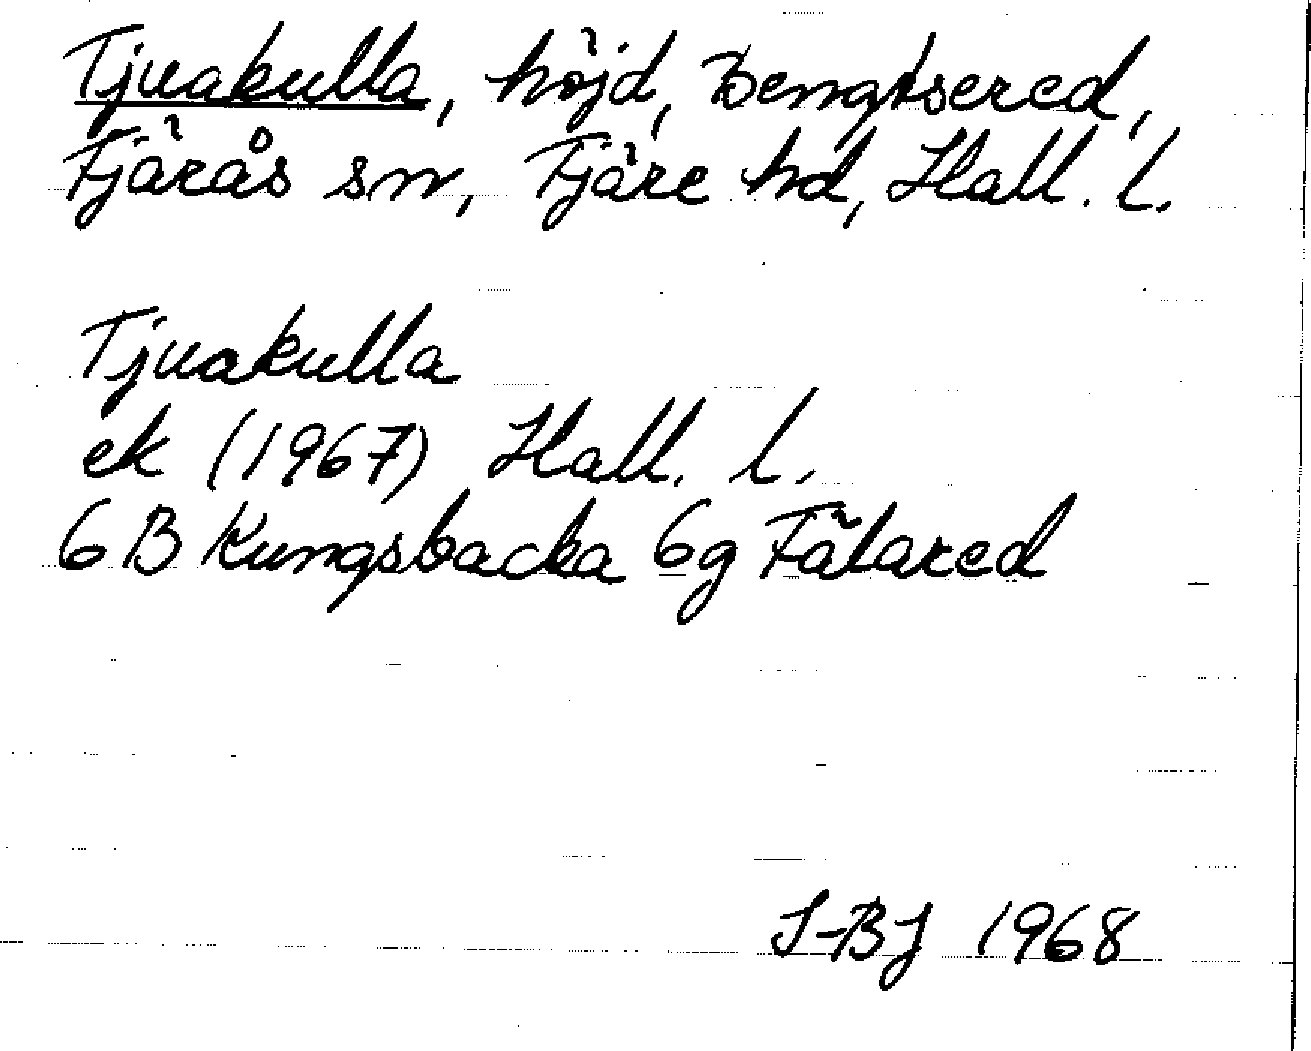 Tjuakulla, höjd, Bengtsered,
Fjärås sn, Fjäre hd, Hall. l.
Tjuakulla
ek (1967) Hall. l.
6B Kungsbacka 6g Fälared
S-BJ 1968